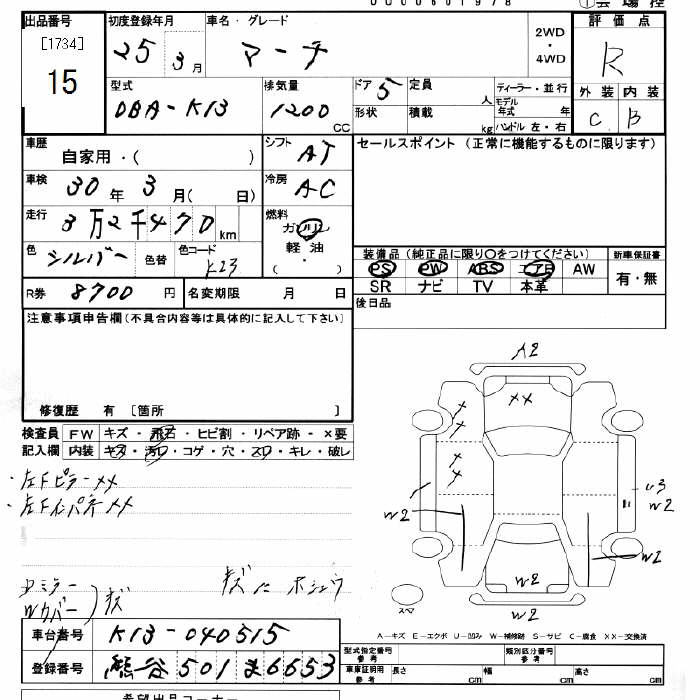 0000601978
①会場控
出品番号 初度登録年月 車名・グレード 2WD・4WD 評価点
[1734]
15 25 3月 マーチ R
型式 排気量 ドア 5 定員 人 ディーラー・並行 外装 内装
DBA-K13 1200 CC 形状 積載 kg モデル年式 年 ハンドル 左・右 C B
車歴 自家用・( ) シフト AT セールスポイント (正常に機能するものに限ります)
車検 30年 3月( 日) 冷房 AC
走行 3万2千470km 燃料 ガソリン 軽油 ・ ( )
色 シルバー 色替 色コード K23
装備品 (純正品に限り○をつけてください) 新車保証書
PS PW ABS エアB AW 有・無
SR ナビ TV 本革
R券 8700円 名変期限 月 日
後日品
注意事項申告欄(不具合内容等は具体的に記入して下さい)
修復歴 有 [箇所 ]
検査員 FW キズ・飛石・ヒビ割・リペア跡・×要
記入欄 内装 キズ・汚れ・コゲ・穴・スレ・キレ・破レ
・左Fピラー××
・左Fインパネ××
キズ
A2
××
×
×
×
×
U3
W2
W2
W2
W2
W2
スペア
A-キズ E-エクボ U-凹み W-補修跡 S-サビ C-腐食 XX-交換済
車台番号 K13-040515
登録番号 熊谷 501 ま6653
型式指定番号 参考 類別区分番号 参考
車庫証明用 参考 長さ cm 幅 cm 高さ cm
希望出品コーナー